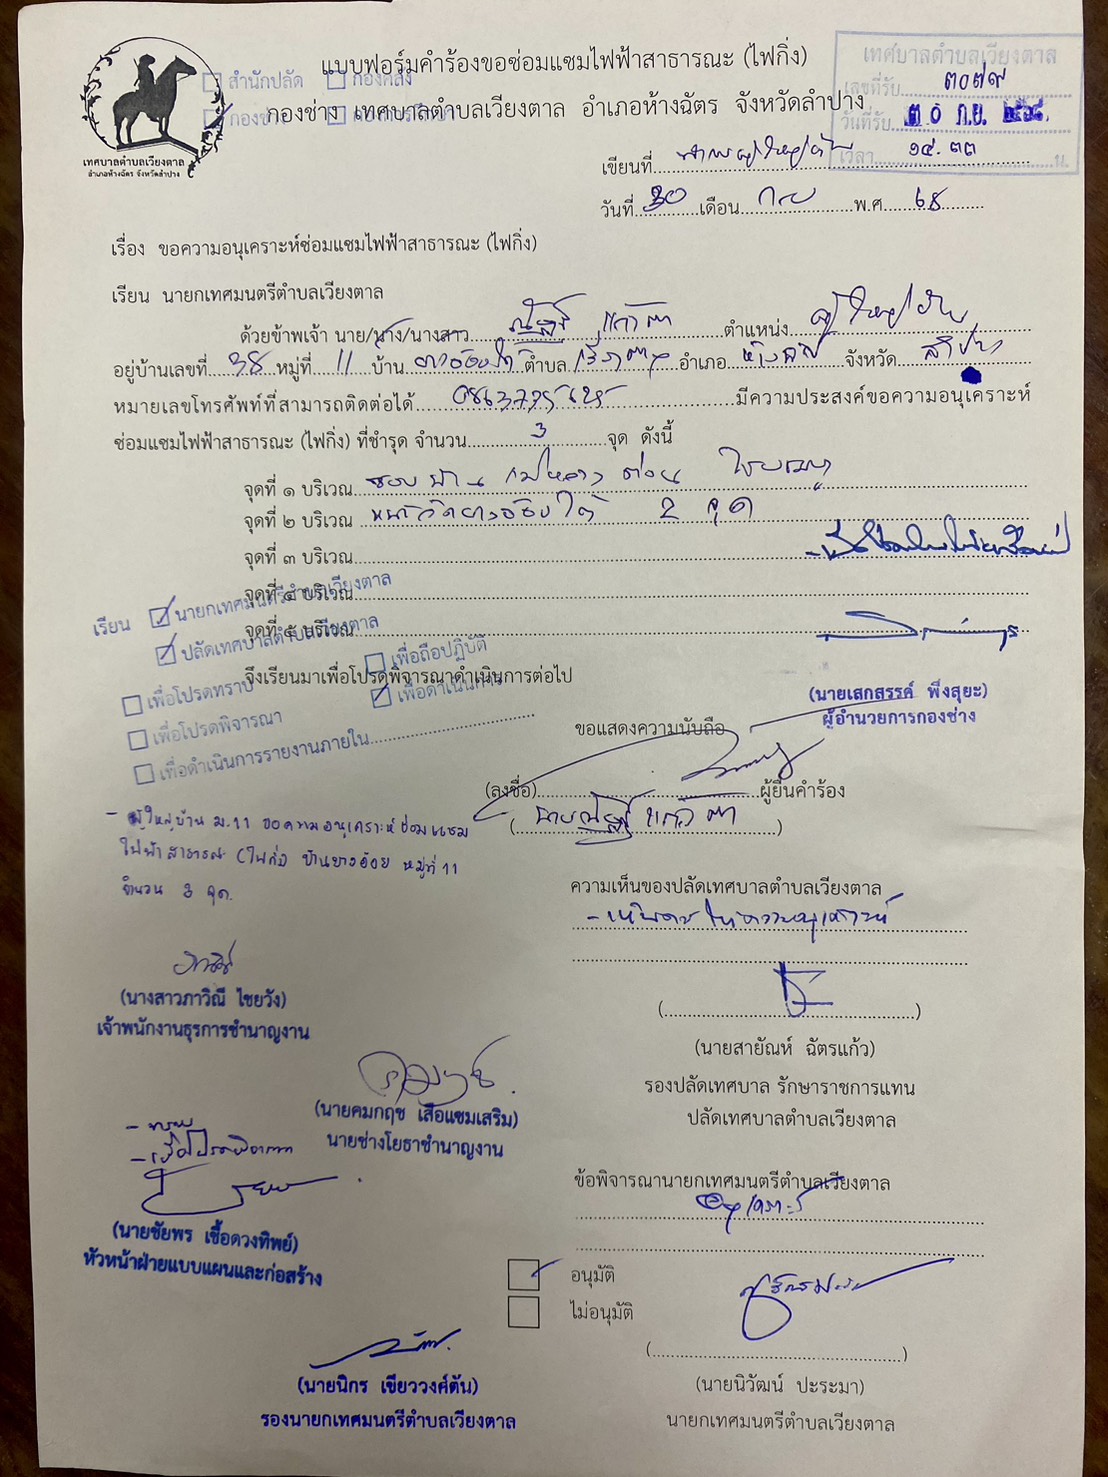 แบบฟอร์มคำร้องขอซ่อมแซมไฟฟ้าสาธารณะ (ไฟกิ่ง)
กองช่าง เทศบาลตำบลเวียงตาล อำเภอห้างฉัตร จังหวัดลำปาง
สำนักปลัด
กองคลัง
กองช่าง
เทศบาลตำบลเวียงตาล
เลขที่รับ ๓๐๗๙
วันที่รับ ๓๐ ก.ย. ๒๕๖๘
เวลา ๑๔.๓๓ น.
เทศบาลตำบลเวียงตาล
อำเภอห้างฉัตร จังหวัดลำปาง
เขียนที่ ที่ทำการผู้ใหญ่บ้าน
วันที่ 30 เดือน กย พ.ศ. 68
เรื่อง ขอความอนุเคราะห์ซ่อมแซมไฟฟ้าสาธารณะ (ไฟกิ่ง)
เรียน นายกเทศมนตรีตำบลเวียงตาล
ด้วยข้าพเจ้า นาย/นาง/นางสาว ตำแหน่ง ผู้ใหญ่บ้าน
อยู่บ้านเลขที่ 38 หมู่ที่ 11 บ้าน ยางอ้อยใต้ ตำบล เวียงตาล อำเภอ ห้างฉัตร จังหวัด ลำปาง
หมายเลขโทรศัพท์ที่สามารถติดต่อได้ มีความประสงค์ขอความอนุเคราะห์
ซ่อมแซมไฟฟ้าสาธารณะ (ไฟกิ่ง) ที่ชำรุด จำนวน 3 จุด ดังนี้
จุดที่ ๑ บริเวณ
จุดที่ ๒ บริเวณ หน้าวัดยางอ้อยใต้ 2 จุด
จุดที่ ๓ บริเวณ
จุดที่ ๔ บริเวณ
จุดที่ ๕ บริเวณ
เรียน นายกเทศมนตรีตำบลเวียงตาล
ปลัดเทศบาลตำบลเวียงตาล
เพื่อถือปฏิบัติ
เพื่อโปรดทราบ
เพื่อดำเนินการ
เพื่อโปรดพิจารณา
เพื่อดำเนินการรายงานภายใน
จึงเรียนมาเพื่อโปรดพิจารณาดำเนินการต่อไป
(นายเสกสรรค์ พึ่งสุยะ)
ผู้อำนวยการกองช่าง
ขอแสดงความนับถือ
(ลงชื่อ) ผู้ยื่นคำร้อง
- ผู้ใหญ่บ้าน ม.11 ขอความอนุเคราะห์ซ่อมแซม
ไฟฟ้าสาธารณะ (ไฟกิ่ง) บ้านยางอ้อย หมู่ที่ 11
จำนวน 3 จุด.
ความเห็นของปลัดเทศบาลตำบลเวียงตาล
- เห็นควรให้ความอนุเคราะห์
(นางสาวภาวิณี ไชยวัง)
เจ้าพนักงานธุรการชำนาญงาน
(นายสายัณห์ ฉัตรแก้ว)
รองปลัดเทศบาล รักษาราชการแทน
ปลัดเทศบาลตำบลเวียงตาล
(นายคมกฤช เสือแซมเสริม)
นายช่างโยธาชำนาญงาน
- ทราบ
- เพื่อโปรดพิจารณา
(นายชัยพร เชื้อดวงทิพย์)
หัวหน้าฝ่ายแบบแผนและก่อสร้าง
ข้อพิจารณานายกเทศมนตรีตำบลเวียงตาล
อนุเคราะห์
อนุมัติ
ไม่อนุมัติ
(นายนิกร เขียววงศ์ตัน)
รองนายกเทศมนตรีตำบลเวียงตาล
(นายนิวัฒน์ ปะระมา)
นายกเทศมนตรีตำบลเวียงตาล